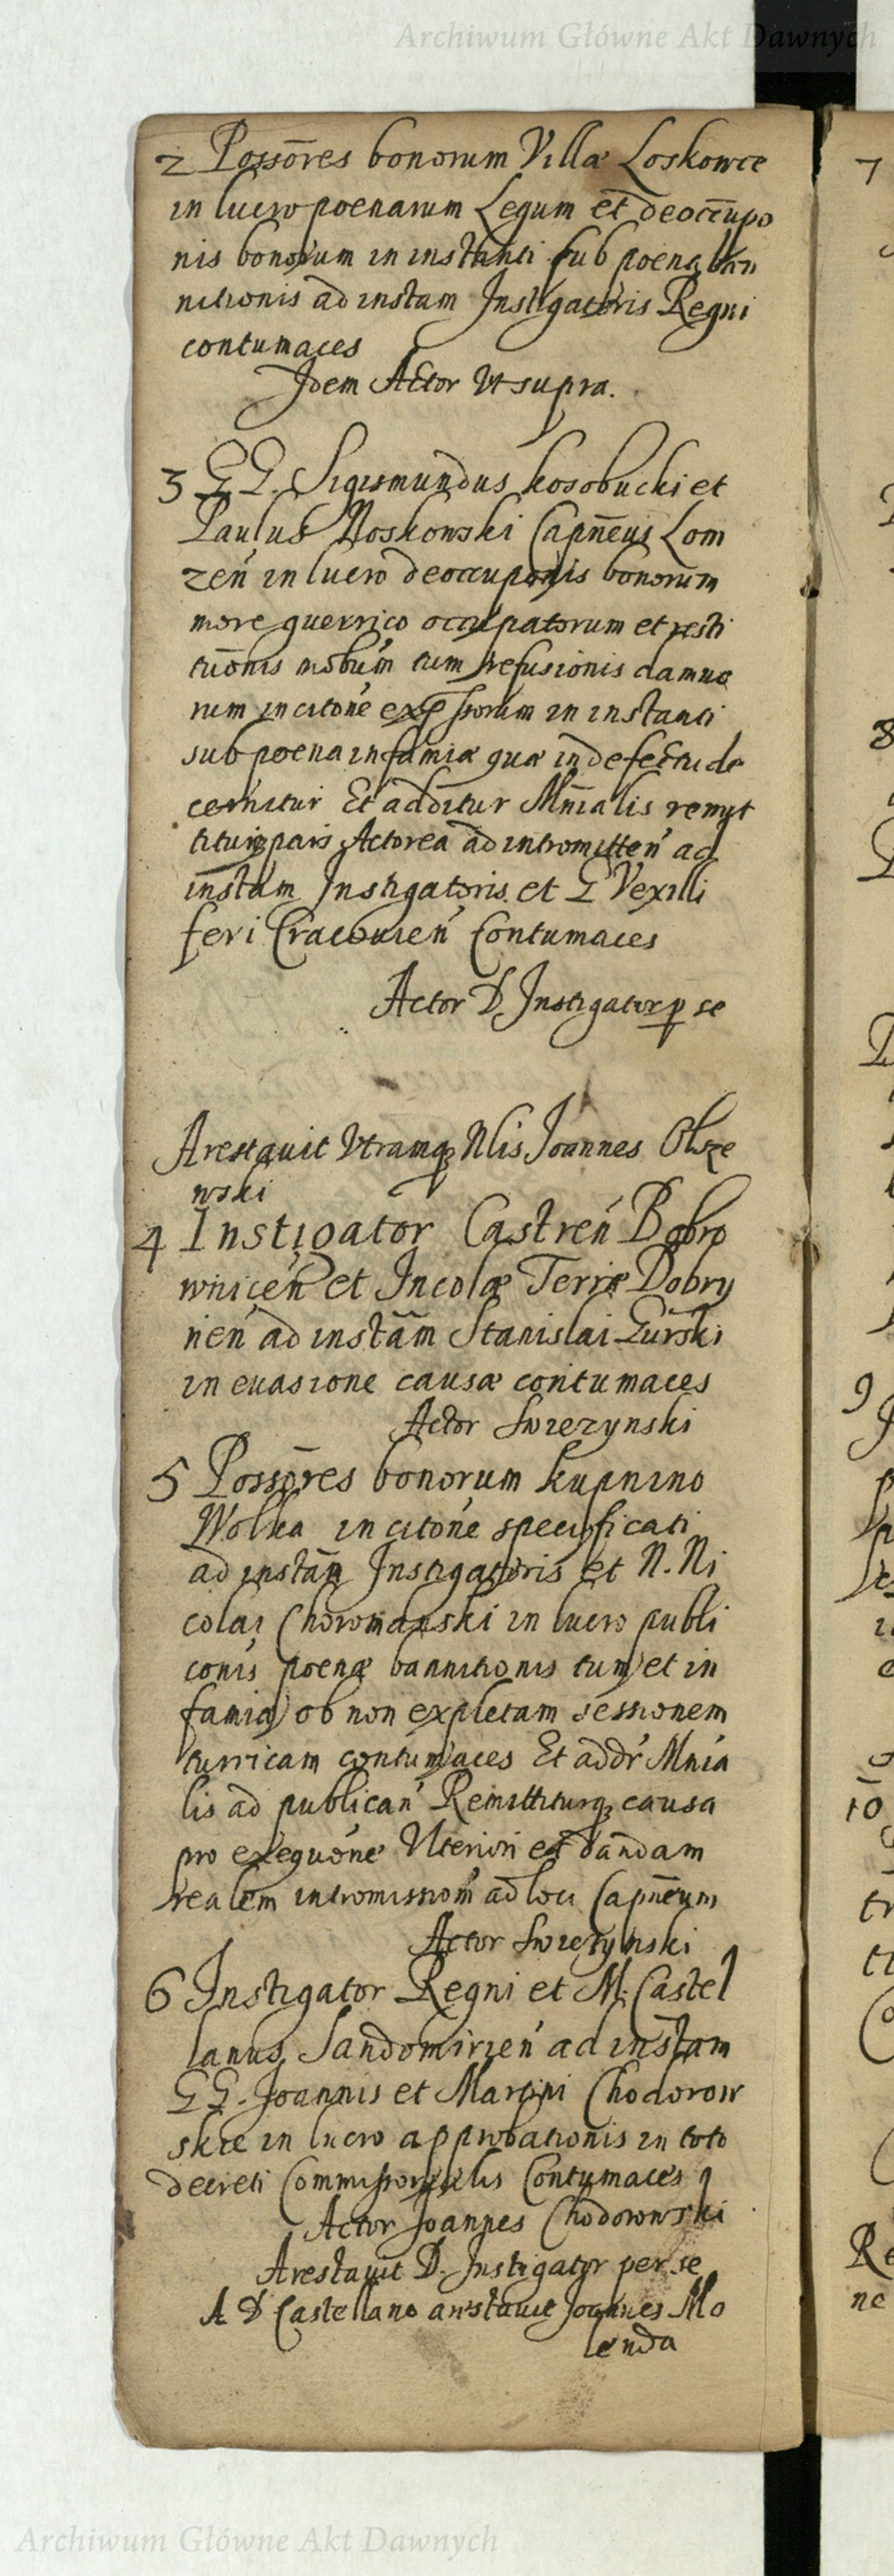 Archiwum Główne Akt Dawnych
2 Possōres bonorum Villæ Loskowce
in lucro poenarum Legum et deoccūpo
nis bonorum in instanti sub poena ban
nitionis ad instam Instigatoris Regni
contumaces
Idem Actor Vt supra.
3 GG. Sigismundus kosobucki et
Paulus Noskowski Capn̄eus Lom
zen̄ in lucro deoccuponis bonorum
more guerrico occupatorum et resti
tuōnis mobūm tum refusionis damno
rum in citōne exp̄ssorum in instanti
sub poena infamiæ quæ in defectu de
cernitur Et additur Mn̄ialis remit
titurq pars Actorea ad intromitten̄ ad
instam Instigatoris et G Vexilli
feri Cracouien̄ Contumaces
Actor D Instigator p se
Arestauit Vtramq Nlis Joannes Olsze
wski
4 Instigator Castren̄ Bobro
wnicen̄ et Incolæ Terræ Dobry
nen̄ ad instām Stanislai Gurski
in euasione causæ contumaces
Actor Swiezynski
5 Possōres bonorum kupnino
Wolka in citōne specificati
ad instām Instigatoris et N. Ni
colai Choromanski in lucro publi
conis poenæ bannitionis tum et in
famiæ ob non expletam sessionem
turricam contumaces Et addr̄ Mnia
lis ad publican̄ Remittiturq causa
pro exequōne Vlteriori et dandam
realem intromissiom̄ ad loci Capn̄eum
Actor Swiezynski
6 Instigator Regni et M. Castel
lanus Sandomirien̄ ad instam
GG. Joannis et Martini Chodorow
skie in lucro approbationis in toto
decreti Commissorialis Contumaces
Actor Joannes Chodorowski
Arestauit D. Instigator per se
A D Castellano arestauit Joannes Mo
lenda
7
8
9
10
Archiwum Główne Akt Dawnych